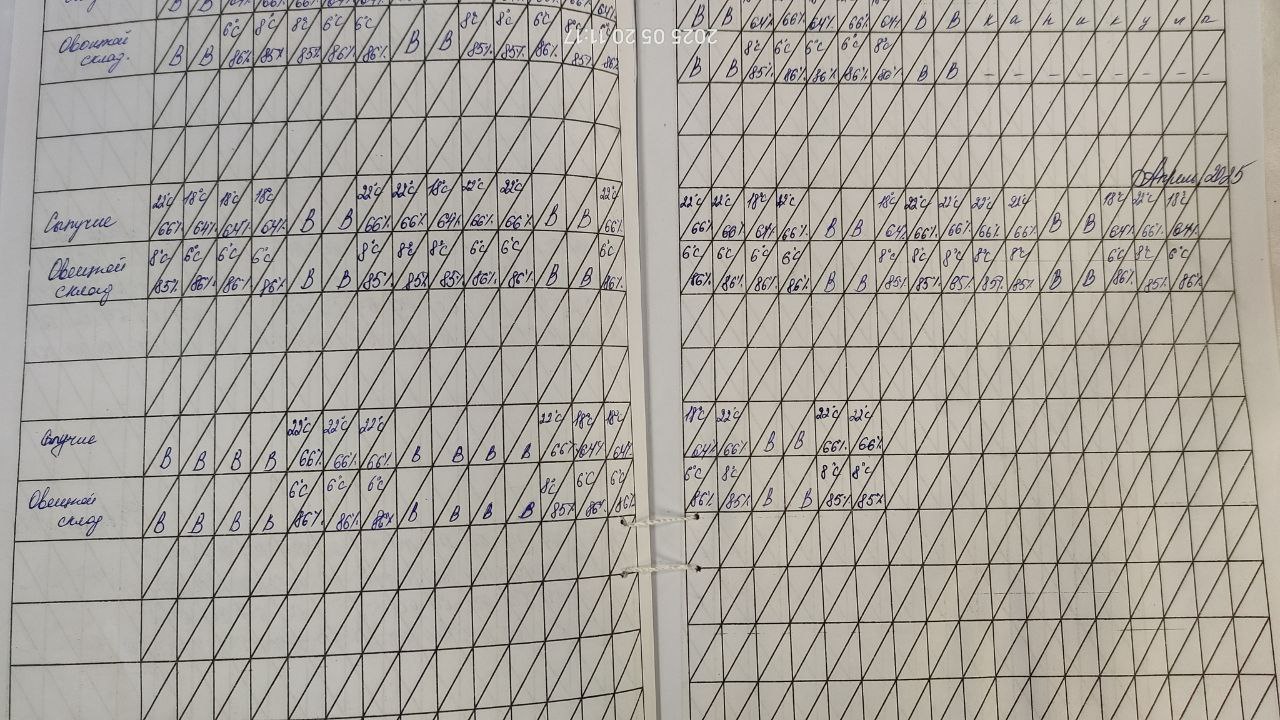 В В 64% 66% 64% 66% 64% В В к а н и к у л а
Овощной склад. В В 6°С 86% 8°С 85% 8°С 85% 6°С 86% 6°С 86% В В 8°С 85% 8°С 85% 6°С 86% 8°С 85% 86%
В В 8°С 85% 6°С 86% 6°С 86% 6°С 86% 8°С В В - - - - - - - -
2025 05 20 11:17
Апрель 2025
Сыпучие 22°С 66% 18°С 64% 18°С 64% 18°С 64% В В 22°С 66% 22°С 66% 18°С 64% 22°С 66% 22°С 66% В В 22°С 66%
22°С 66% 22°С 66% 18°С 64% 22°С 66% В В 18°С 64% 22°С 66% 22°С 66% 22°С 66% 22°С 66% В В 18°С 64% 22°С 66% 18°С 64%
Овощной склад 8°С 85% 6°С 86% 6°С 86% 6°С 86% В В 8°С 85% 8°С 85% 8°С 85% 6°С 86% 6°С 86% В В 6°С 86%
6°С 86% 6°С 86% 6°С 86% 6°С 86% В В 8°С 85% 8°С 85% 8°С 85% 8°С 85% 8°С 85% В В 6°С 86% 8°С 85% 6°С 86%
Сыпучие В В В В 22°С 66% 22°С 66% 22°С 66% В В В В 22°С 66% 18°С 64% 18°С 64%
18°С 64% 22°С 66% В В 22°С 66% 22°С 66%
Овощной склад В В В В 6°С 86% 6°С 86% 6°С 86% В В В В 8°С 85% 6°С 86% 6°С 86%
6°С 86% 8°С 85% В В 8°С 85% 8°С 85%